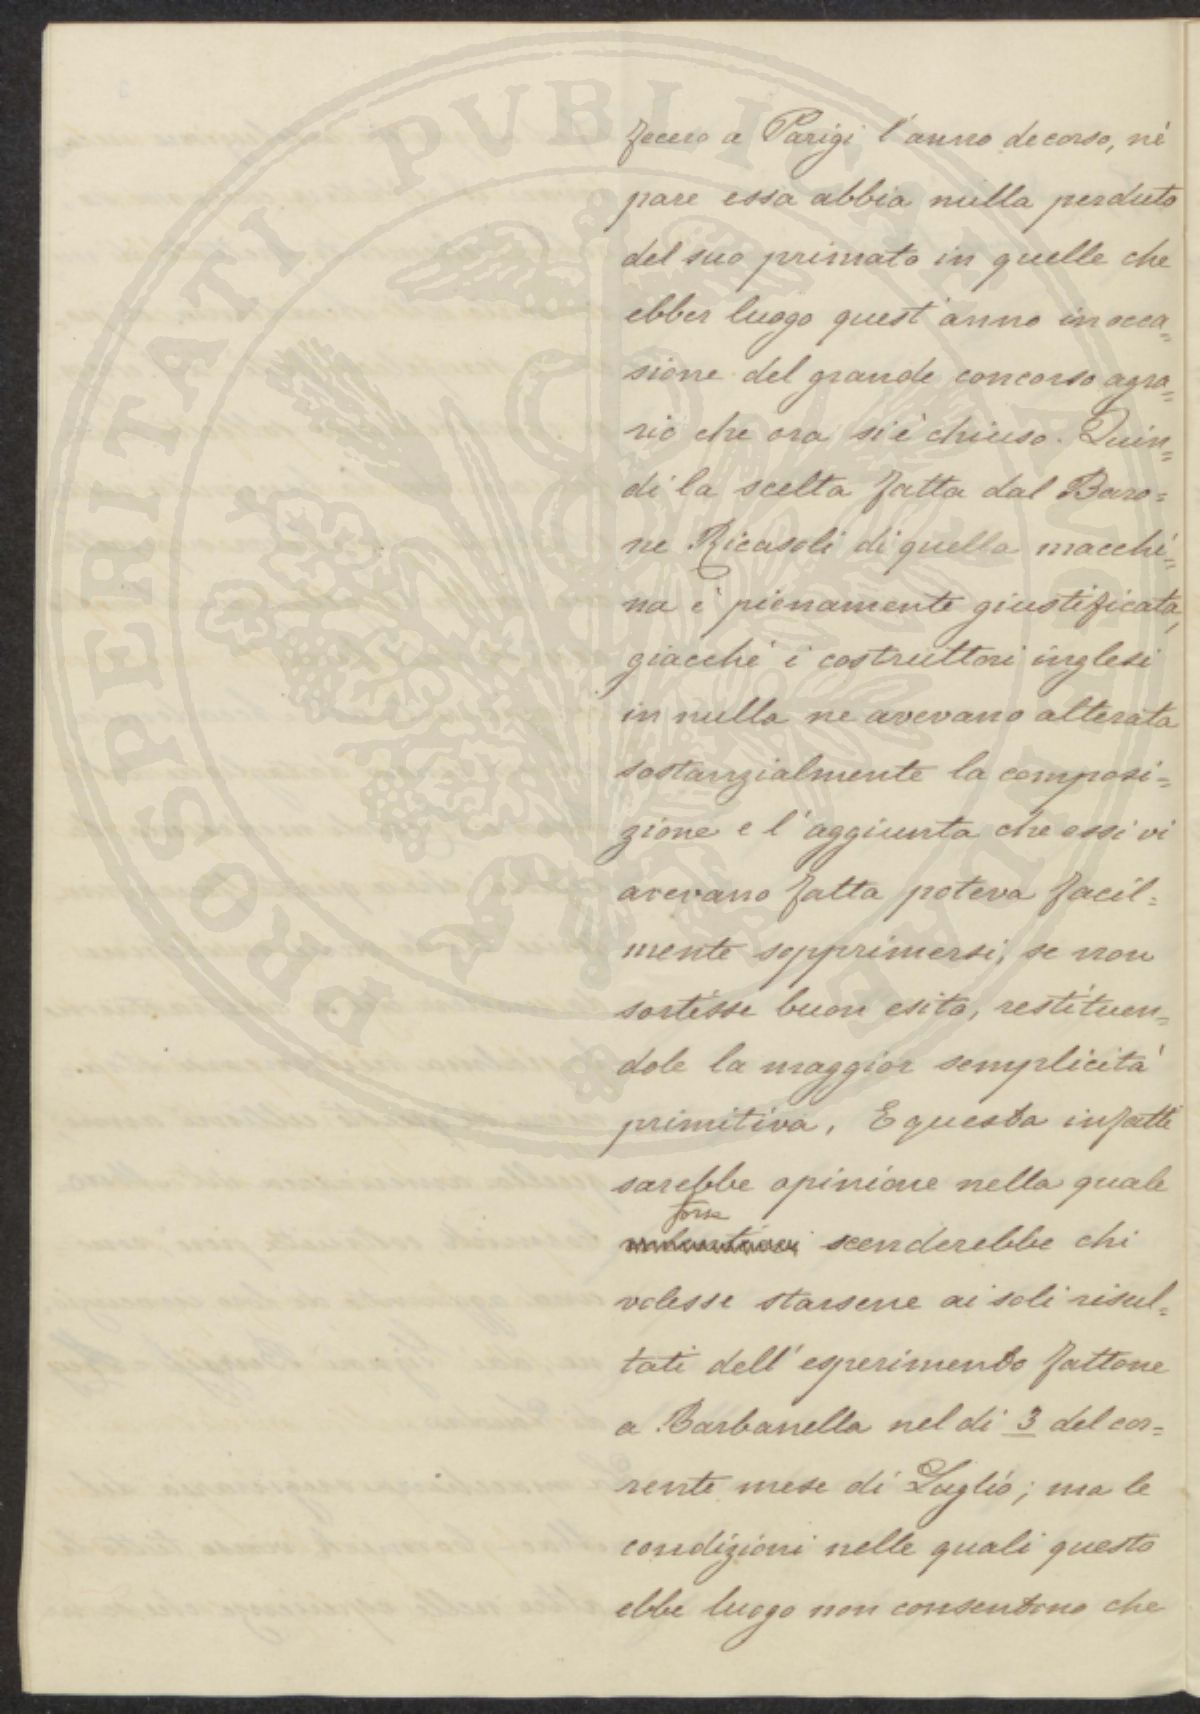 PROSPERITATI PUBLICAE AUGENDAE
fecero a Parigi l'anno decorso, nè
pare essa abbia nulla perduto
del suo primato in quelle che
ebber luogo quest'anno in occa=
sione del grande concorso agra=
rio che ora si è chiuso. Quin=
di la scelta fatta dal Baro=
ne Ricasoli di quella macchi=
na è pienamente giustificata,
giacchè i costruttori inglesi
in nulla ne avevano alterata
sostanzialmente la composi=
zione e l'aggiunta che essi vi
avevano fatta poteva facil=
mente sopprimersi, se non
sortisse buon esito, restituen=
dole la maggior semplicità
primitiva. E questa infatti
sarebbe opinione nella quale
forse
scenderebbe chi
volesse starsene ai soli risul=
tati dell'esperimento fattone
a Barbanella nel di 3 del cor=
rente mese di Luglio; ma le
condizioni nelle quali questo
ebbe luogo non consentono che